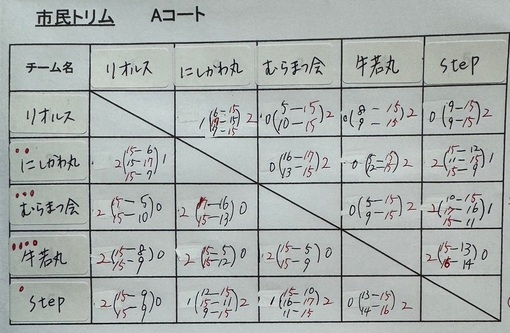 市民トリム Aコート
チーム名 リオルス にしかわ丸 むらまつ会 牛若丸 step
リオルス 0(5-15 10-15)2 0(8-15 9-15)2 0(9-15 9-15)2
にしかわ丸 2(15-6 15-17 15-7)1 0(16-17 13-15)2 2(15-12 11-15 15-9)1
むらまつ会 2(15-5 15-10)0 2(17-16 15-13)0 0(5-15 9-15)2 2(10-15 17-16 15-11)1
牛若丸 2(15-8 15-9)0 2(15-5 15-12)0 2(15-5 15-9)0 2(15-13 16-14)0
step 2(15-9 15-9)0 1(12-15 15-11 9-15)2 1(15-10 16-17 11-15)2 0(13-15 14-16)2